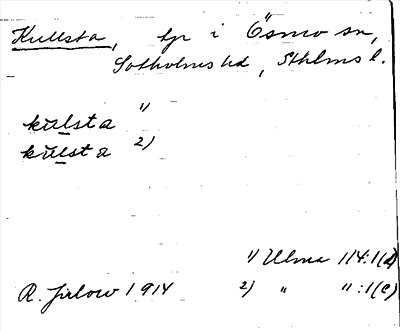 Kullsta, by i Ösmo sn,
Sotholms hd, Sthlms l.
kulsta 1)
kulsta 2)
1) Ulma 114:1(
R. Jirlow 1914 2) " " :1(c)